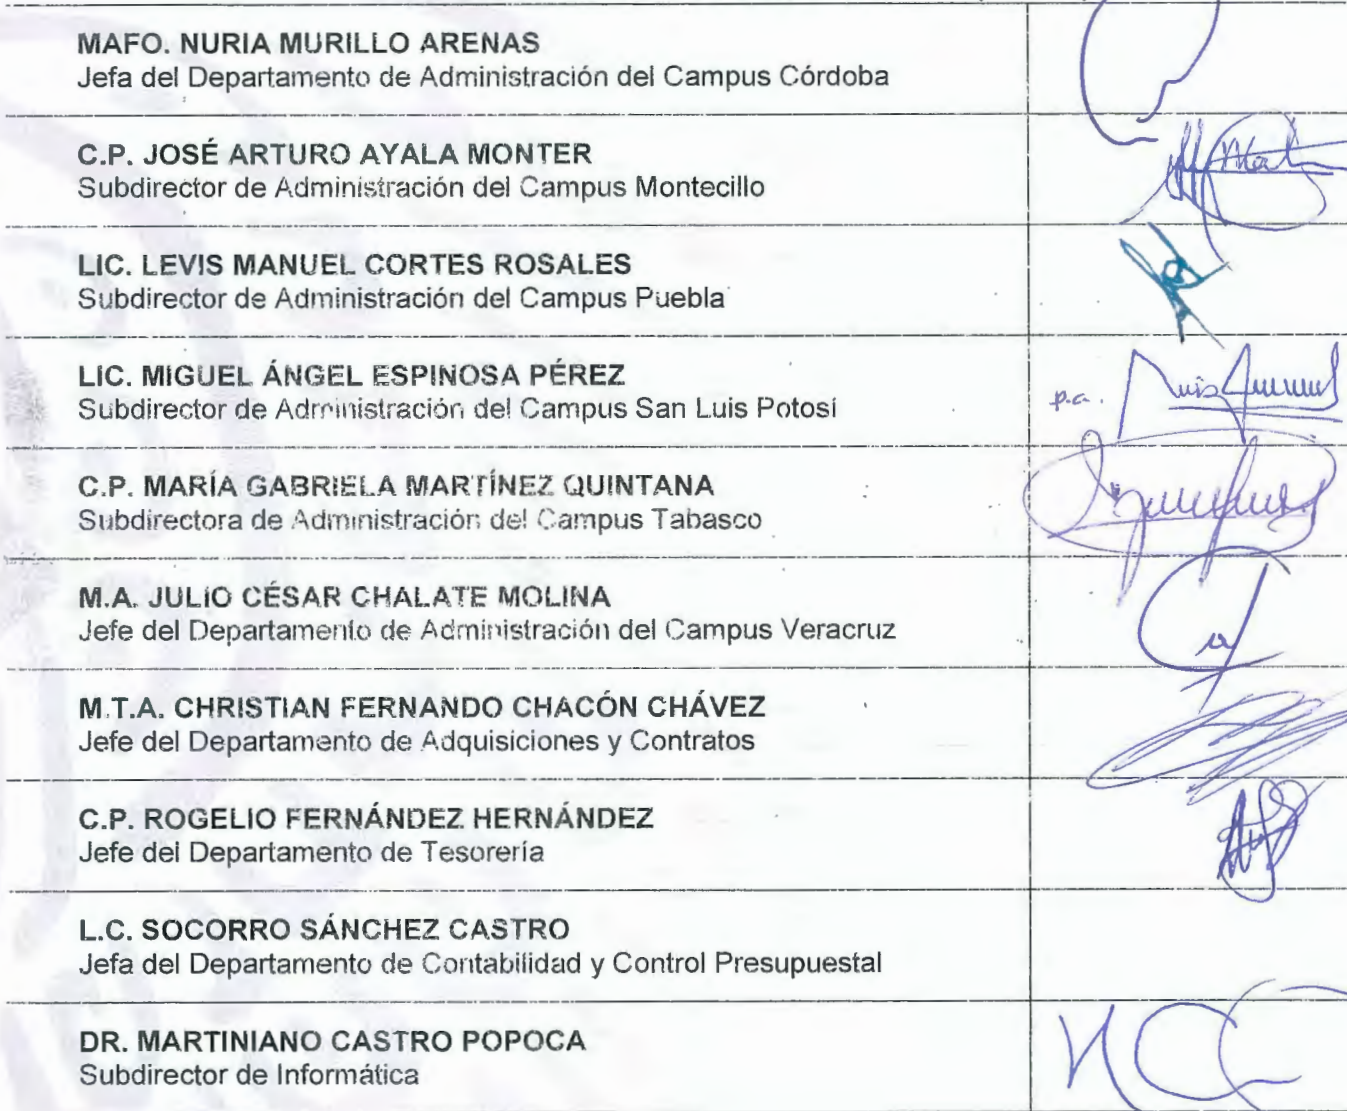 MAFO. NURIA MURILLO ARENAS
Jefa del Departamento de Administración del Campus Córdoba
C.P. JOSÉ ARTURO AYALA MONTER
Subdirector de Administración del Campus Montecillo
LIC. LEVIS MANUEL CORTES ROSALES
Subdirector de Administración del Campus Puebla
LIC. MIGUEL ÁNGEL ESPINOSA PÉREZ
Subdirector de Administración del Campus San Luis Potosí
p.a.
C.P. MARÍA GABRIELA MARTÍNEZ QUINTANA
Subdirectora de Administración del Campus Tabasco
M.A. JULIO CÉSAR CHALATE MOLINA
Jefe del Departamento de Administración del Campus Veracruz
M.T.A. CHRISTIAN FERNANDO CHACÓN CHÁVEZ
Jefe del Departamento de Adquisiciones y Contratos
C.P. ROGELIO FERNÁNDEZ HERNÁNDEZ
Jefe del Departamento de Tesorería
L.C. SOCORRO SÁNCHEZ CASTRO
Jefa del Departamento de Contabilidad y Control Presupuestal
DR. MARTINIANO CASTRO POPOCA
Subdirector de Informática